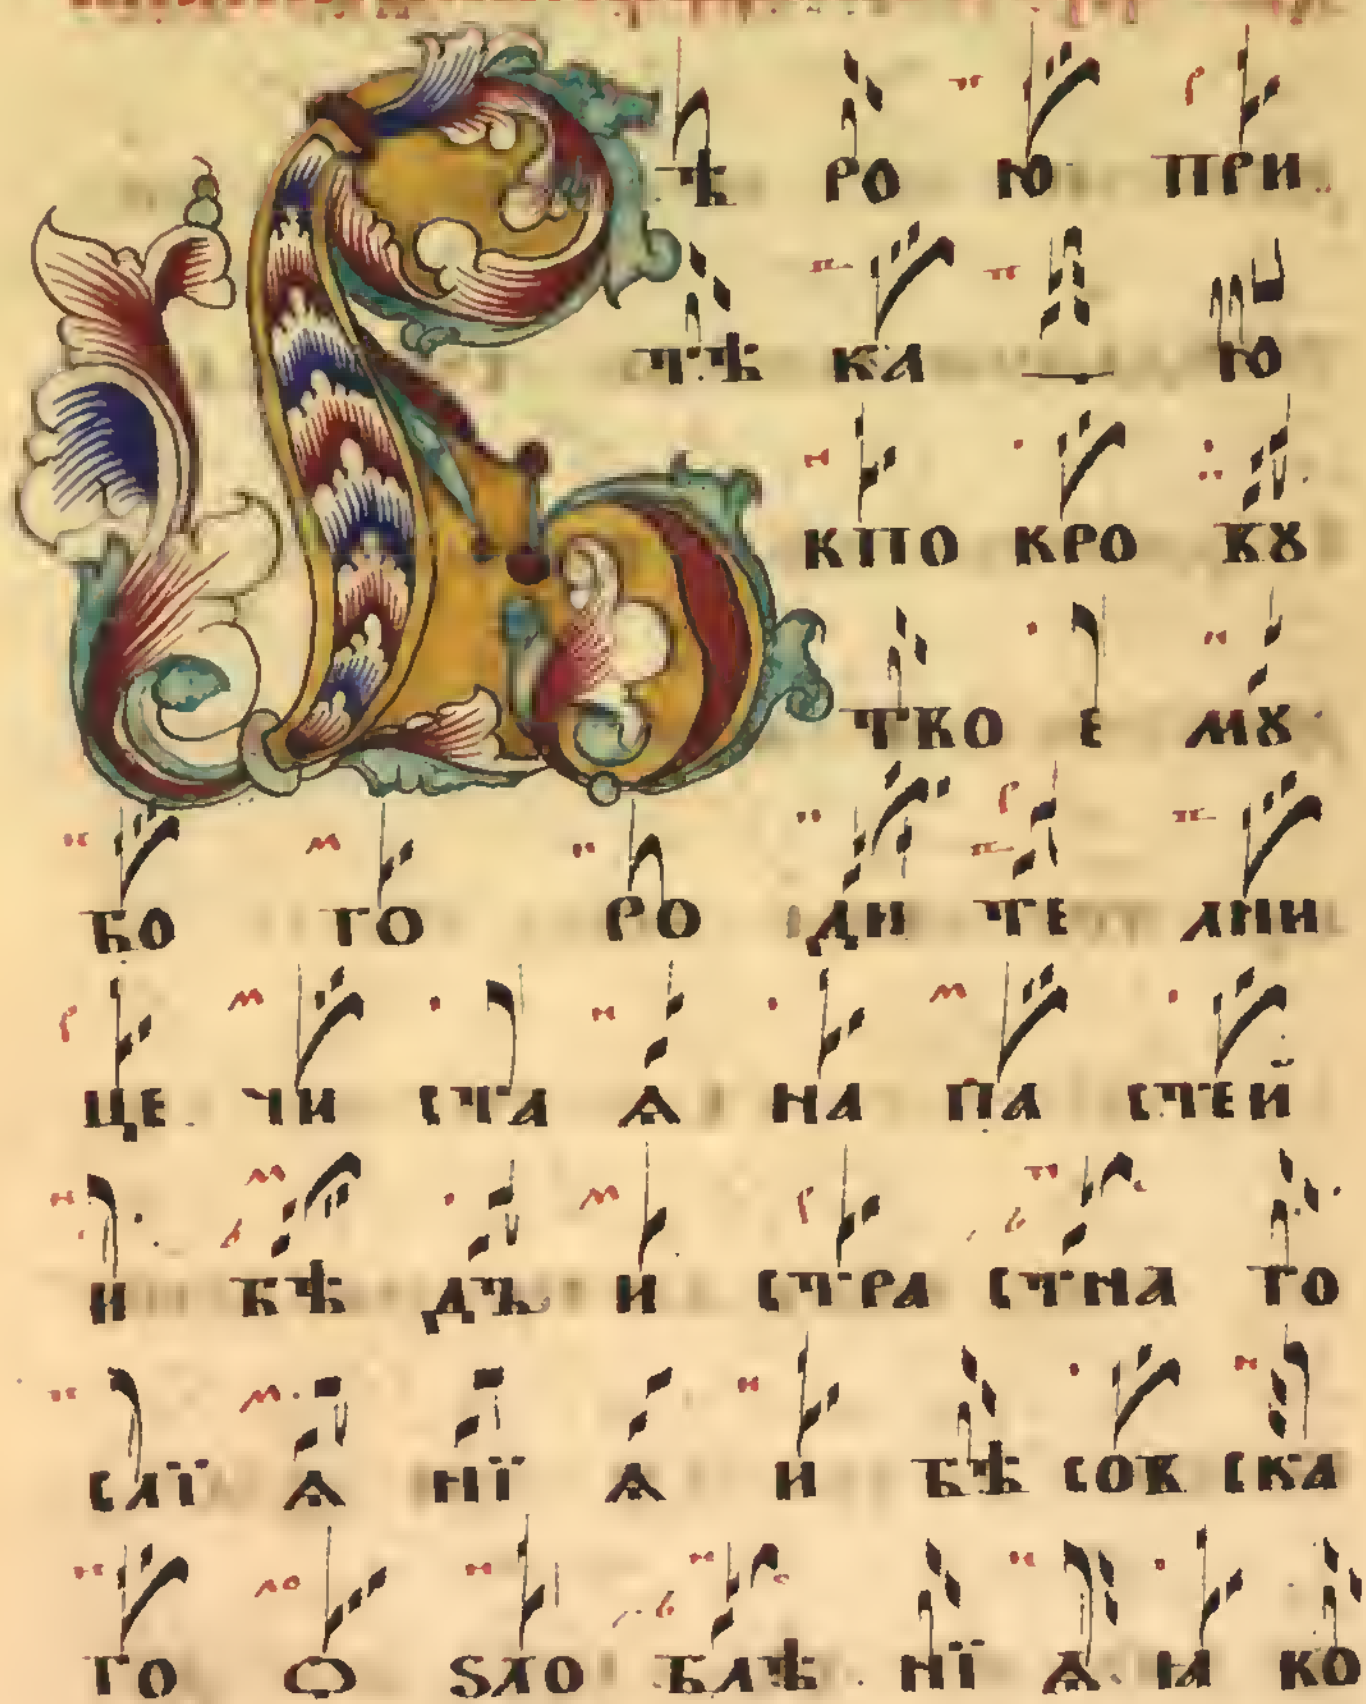 Вѣ ро ю при
тѣ ка ю
к по кро вꙋ
тво е мꙋ
бо го ро ди те лни
це чи ста ѧ на па стей
и бѣ дъ и стра стна го
слї ѧ нї ѧ и бѣ сов ска
го ѻ ѕло блѣ нї ѧ ꙗ ко